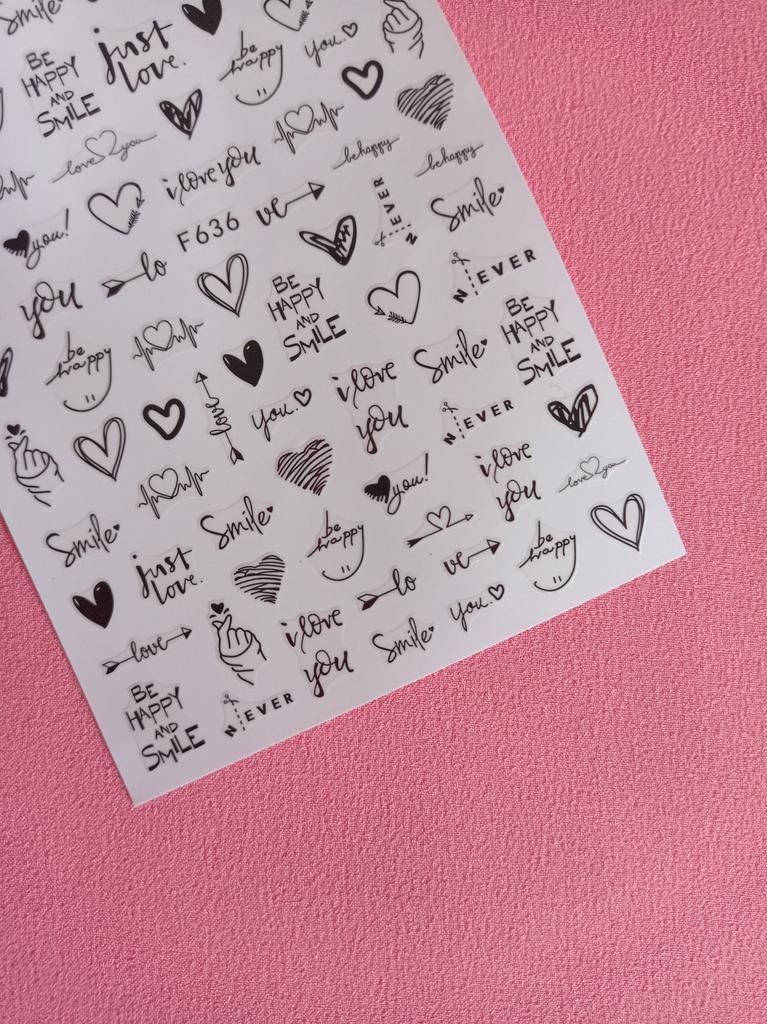 Smile
BE
HAPPY
AND
SMILE
just
love.
be
happy
you.
love you
i love you
behappy
behappy
you!
F636
ve
NEVER
Smile
you
lo
BE
HAPPY
AND
SMILE
NEVER
be
happy
BE
HAPPY
AND
SMILE
love
you.
i love
you
Smile
NEVER
Smile
Smile
you!
i love
you
love you
just
love.
be
happy
lo
ve
be
happy
love
i love
you
Smile
you.
BE
HAPPY
AND
SMILE
NEVER